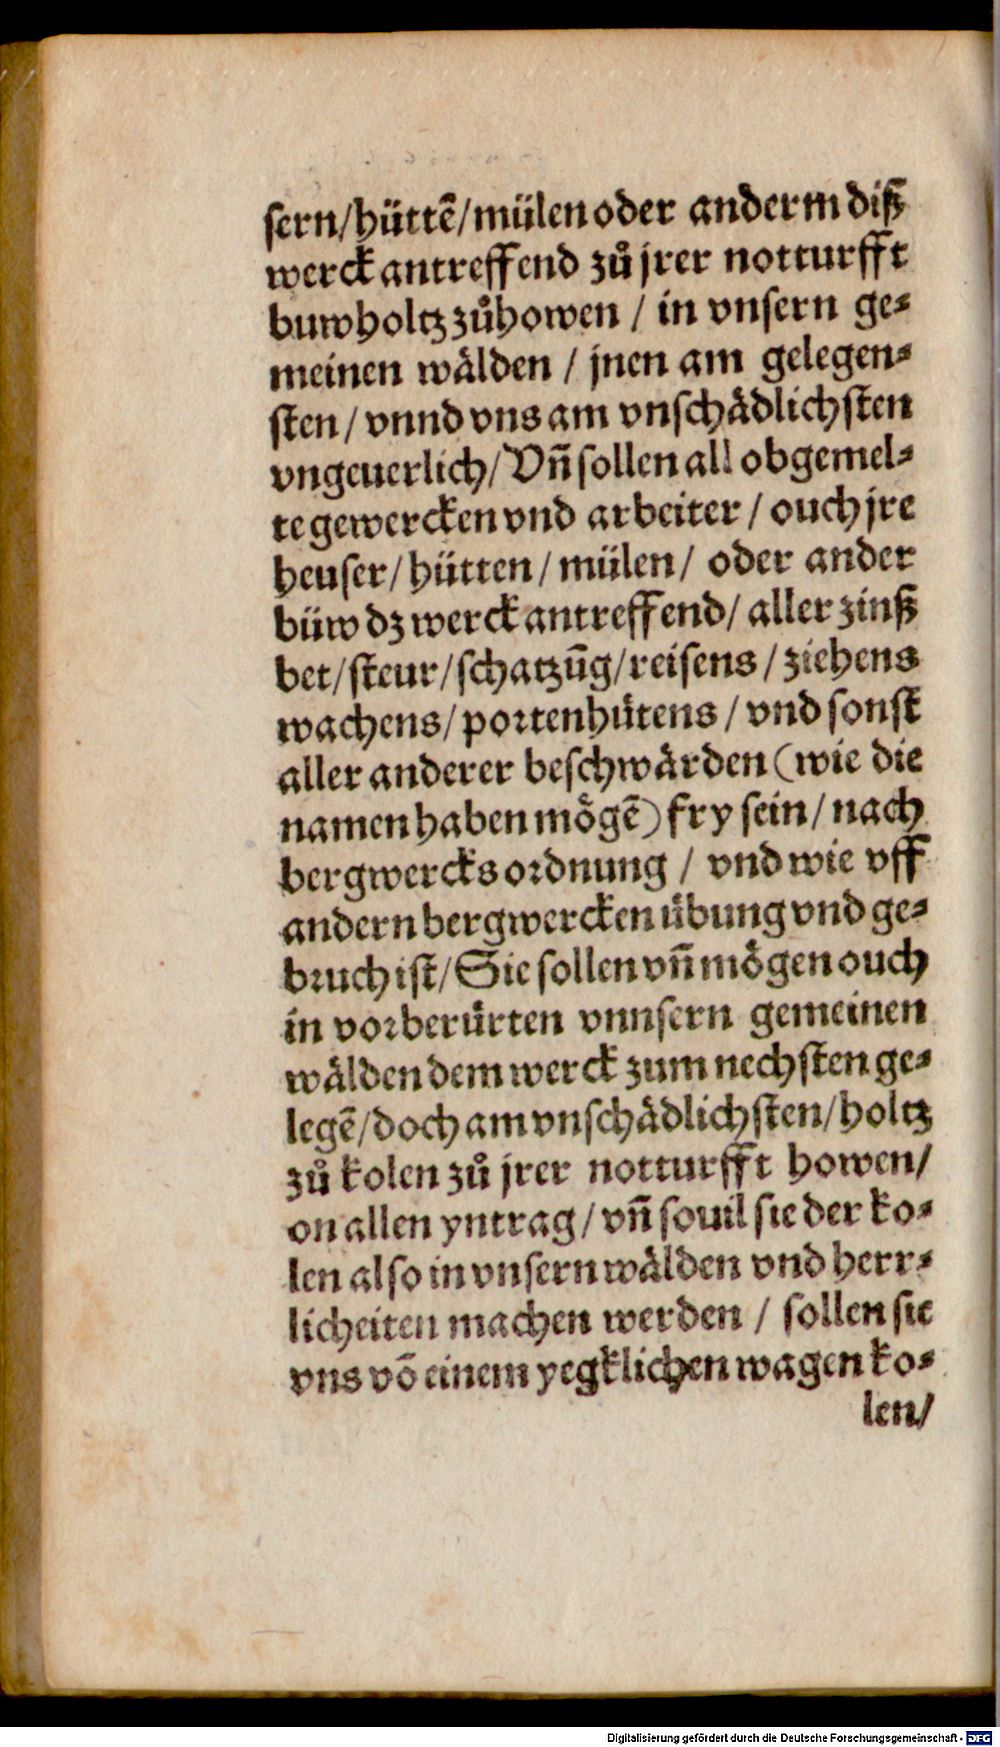 sern/hüttē/mülen oder anderm diß
werck antreffend zů jrer notturfft
buwholtz zůhowen / in vnsern ge⸗
meinen wälden / jnen am gelegen⸗
sten / vnnd vns am vnschädlichsten
vngeuerlich/ Vñ sollen all obgemel⸗
te gewercken vnd arbeiter / ouch jre
heuser/hütten/mülen/ oder ander
büw dz werck antreffend/ aller zinß
bet/steur/schatzūg/reisens/ziehens
wachens/portenhütens/vnd sonst
aller anderer beschwärden (wie die
namen haben mögē) fry sein/nach
bergwercks ordnung / vnd wie vff
andern bergwercken übung vnd ge⸗
bruch ist/Sie sollen vñ mögen ouch
in vorberürten vnnsern gemeinen
wälden dem werck zum nechsten ge⸗
legē/doch am vnschädlichsten/holtz
zů kolen zů jrer notturfft howen/
on allen yntrag/vñ souil sie der ko⸗
len also in vnsern wälden vnd herr⸗
licheiten machen werden / sollen sie
vns vō einem yegklichen wagen ko⸗
len/
Digitalisierung gefördert durch die Deutsche Forschungsgemeinschaft - DFG